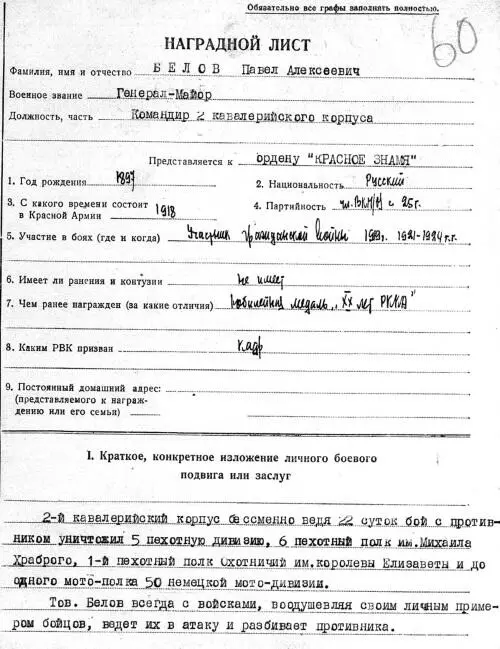 Обязательно все графы заполнять полностью.
60
НАГРАДНОЙ ЛИСТ
Фамилия, имя и отчество БЕЛОВ Павел Алексеевич
Военное звание Генерал-Майор
Должность, часть Командир 2 кавалерийского корпуса
Представляется к ордену "КРАСНОЕ ЗНАМЯ"
1. Год рождения 1897 2. Национальность Русский
3. С какого времени состоит в Красной Армии 1918 4. Партийность чл. ВКП(б) с 25 г.
5. Участие в боях (где и когда) Участник Гражданской войны 1919г. 1921-1924 г.г.
6. Имеет ли ранения и контузии не имеет
7. Чем ранее награжден (за какие отличия) Юбилейная медаль „XX лет РККА"
8. Каким РВК призван кадр
9. Постоянный домашний адрес:
(представляемого к награж-
дению или его семьи)
I. Краткое, конкретное изложение личного боевого
подвига или заслуг
2-й кавалерийский корпус бессменно ведя 22 суток бой с против-
ником уничтожил 5 пехотную дивизию, 6 пехотный полк им.Михаила
Храброго, 1-й пехотный полк Охотничий им.королевы Елизаветы и до
одного мото-полка 50 немецкой мото-дивизии.
Тов. Белов всегда с войсками, воодушевляя своим личным приме-
ром бойцов, ведет их в атаку и разбивает противника.